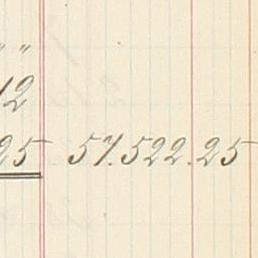 " "
12
25 57.522.25